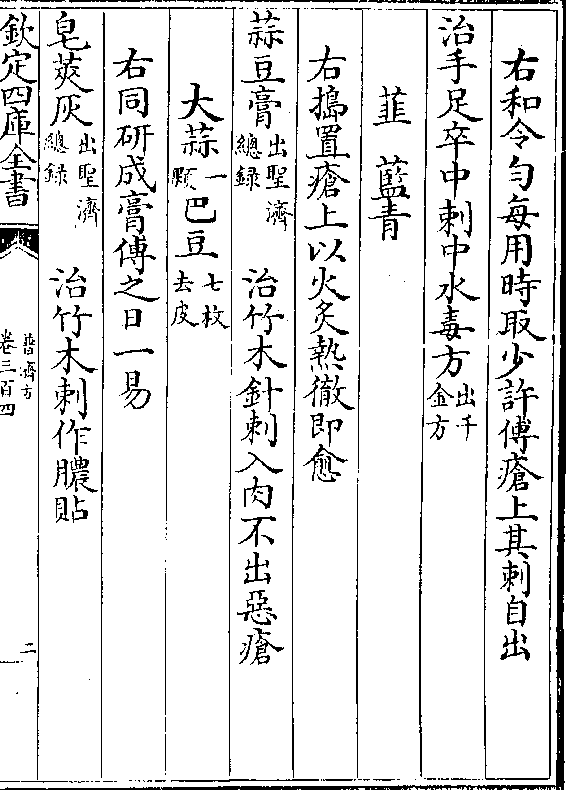 右和令勻每用時取少許傅瘡上其刺自出
治手足卒中刺中水毒方出千金方
韮 藍青
右搗置瘡上以火炙熱徹即愈
蒜豆膏出聖濟總録 治竹木針刺入肉不出惡瘡
大蒜一顆巴豆七枚去皮
右同研成膏傅之日一易
皂莢灰出聖濟總録 治竹木刺作膿貼
欽定四庫全書
普濟方
卷三百四
二